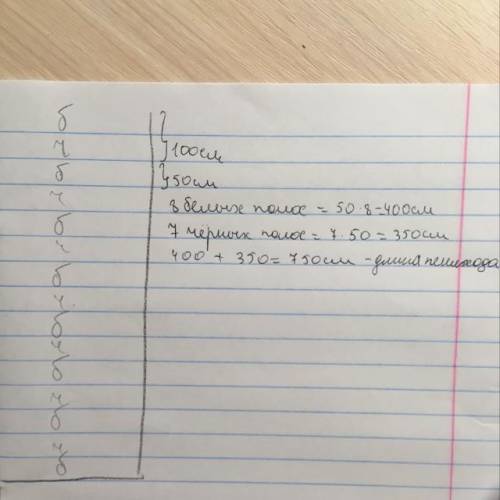 б
ч
б
ч
б
ч
б
ч
б
ч
б
ч
б
ч
б
100см
50см
8 белых полос = 50·8=400см
7 черных полос = 7·50 = 350см
400 + 350 = 750см - длина пешехода